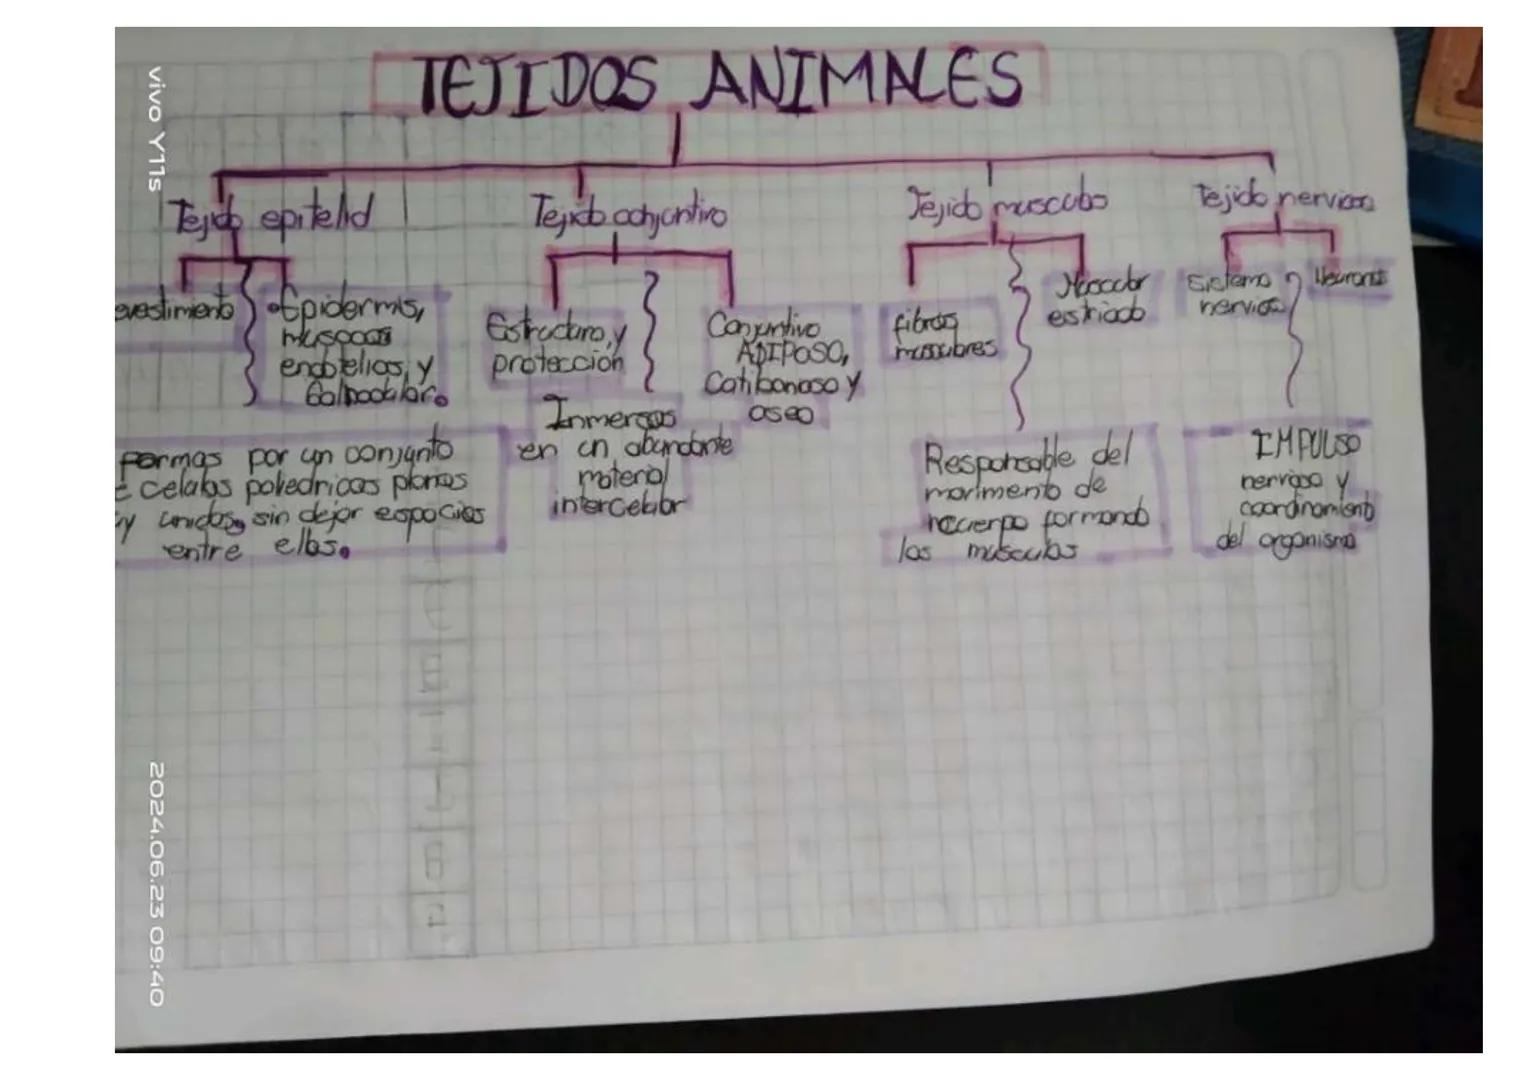 TEJIDOS ANIMALES
Tejido epitelid
evestimiento
Epidermis,
muspoas
endotelios, y
Tejido conjuntivo
Estructura, y
protección
Conjuntivo
ADIPOSO,
Catibonoso y
oseo
Tejido musculo
fibras
musculares
Muscular
estriado
Tejido nervioso
Sistema
nervioso
Neurona
formas por un conjunto
celulas poliedricas planas
y unidos, sin dejar espacios
entre ellas.
Inmersas
en un abundante
material
intercelular
Responsable del
movimiento de
formando
los musculos
IMPULSO
nervioso y
coordinamiento
del organismo
vivo Y11s
2024.06.23 09:40